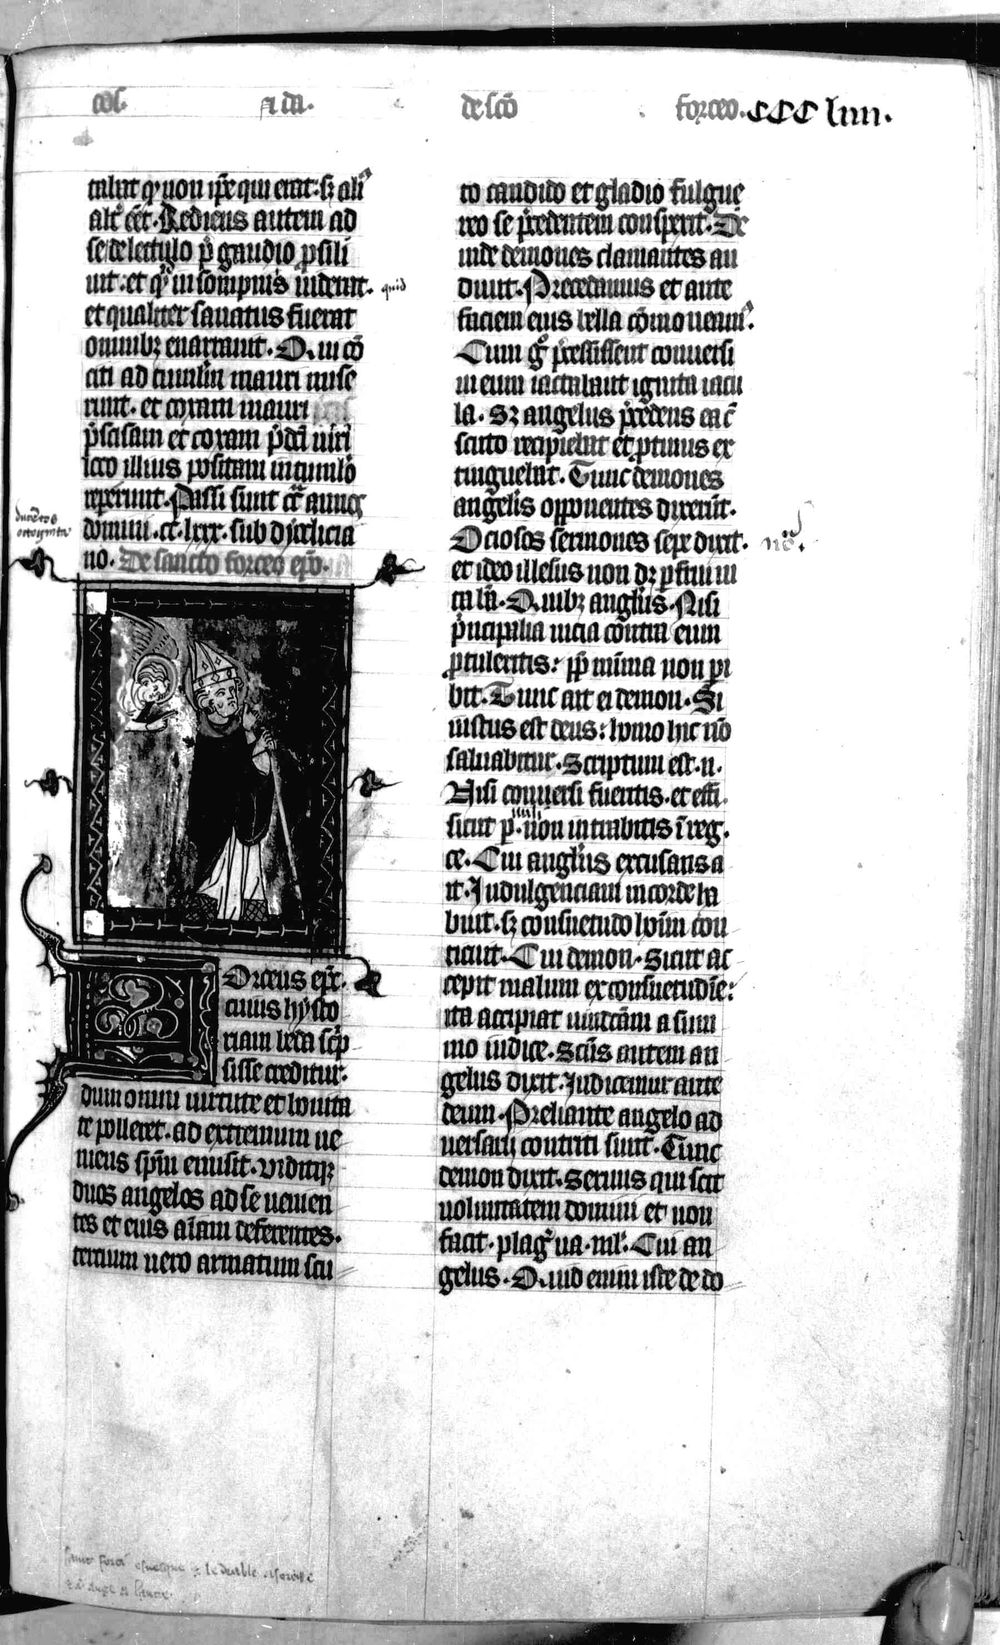 cos. A da. de sc̄o forceo. CCC liiii.
tabat qͥ non ip̄e qui erat: sꝫ aliꝰ
alt̄ eēt. Rediens autem ad
se de lectulo p̄ gaudio ꝓsili
uit. et qͥ in sompnis uiderit. quid
et qualiter sanatus fuerat
omnibꝫ enarrauit. Qui cō
citi ad tumulū mauri mise
runt. et coxam mauri
p̄scisam et coxam p̄dc̄i uiri
loco illius positam in tumulo
reperunt. Passi sunt
domini .cc. lxxx. sub dyoclicia
no. De sancto forceo ep̄o.
Orceus ep̄c.
cuius hysto
riam beda sc̄p
sisse creditur.
dum omni uirtute et bonita
te polleret. ad extremum ue
niens sp̄m emisit. Viditqꝫ
duos angelos ad se uenien
tes et eius aīam deferentes.
tercium uero armatum scu
to candido et gladio fulgure
reo se p̄cedentem conspexit. De
inde demones clamantes au
diuit. Precedamus et ante
faciem eius bella cōmoueamꝰ.
Cum gͦ p̄cessissent conuersi
in eum iactabant ignita iacu
la. Sꝫ angelus p̄cedens ea
scuto recipiebat et ꝓtinus ex
tinguebat. Tunc demones
angelis opponentes dixerūt.
Ociosos sermones sepe dixit.
et ideo illesus non dꝫ ꝑfrui ui
ta bā. Quibꝫ anglus. Nisi
p̄ncipalia uicia contra eum
ꝓtuleritis: ꝓp̄ minima non pi
bit. Tunc ait ei demon. Si
iustus est deus: homo hic nō
saluabitur. Scriptum est .n.
Nisi conuersi fueritis. et effi.
sicut p̄. non intrabitis ī reg.
ce. Cui anglus excusans a
it. Indulgenciam in corde ha
buit. sꝫ consuetudo hoīm con
tinuit. Cui demon. Sicut ac
cepit malum ex consuetudīe:
ita accipiat uindictam a sum
mo iudice. Scūs autem an
gelus dixit. Iudicemur ante
deum. Preliante angelo ad
uersarii contriti sunt. Tunc
demon dixit. Seruus qui scit
uoluntatem domini et non
facit. plag̃ ua. ml̄. Cui an
gelus. Quid enim iste de do